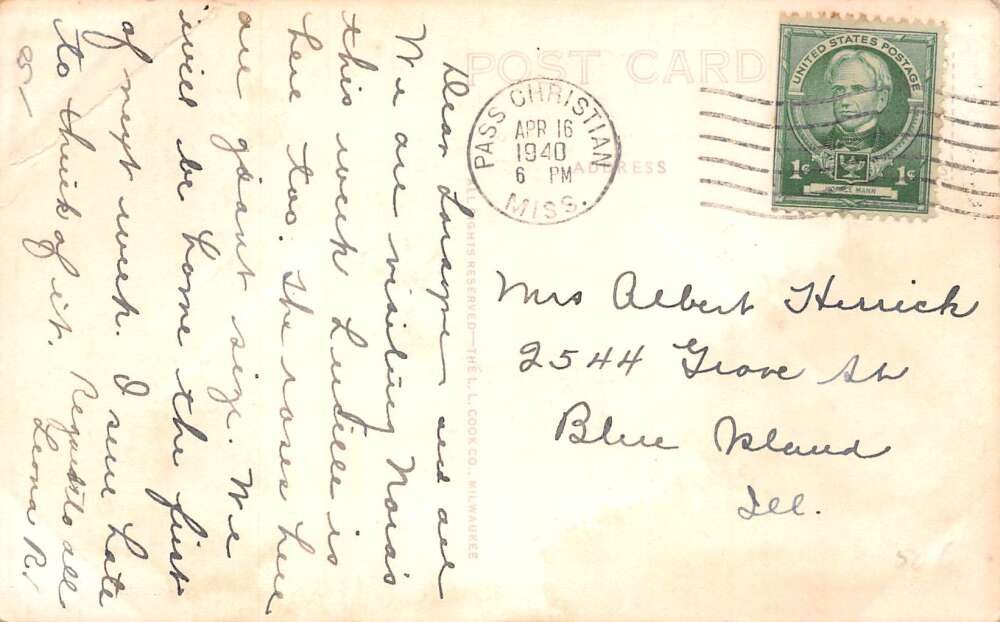 POST CARD
ADDRESS
ALL RIGHTS RESERVED—THE L. L. COOK CO., MILWAUKEE
UNITED STATES POSTAGE
1¢ 1¢
HORACE MANN
PASS CHRISTIAN
APR 16
1940
6 PM
MISS.
Mrs Albert Herrick
2544 Grove St
Blue Island
Ill.
Dear Lorayne and all
We are visiting Nora's
this week Lucille is
here too. The roses here
are giant size. We
will be home the first
of next week. I sure hate
to think of it. Regards to all
Leona R.